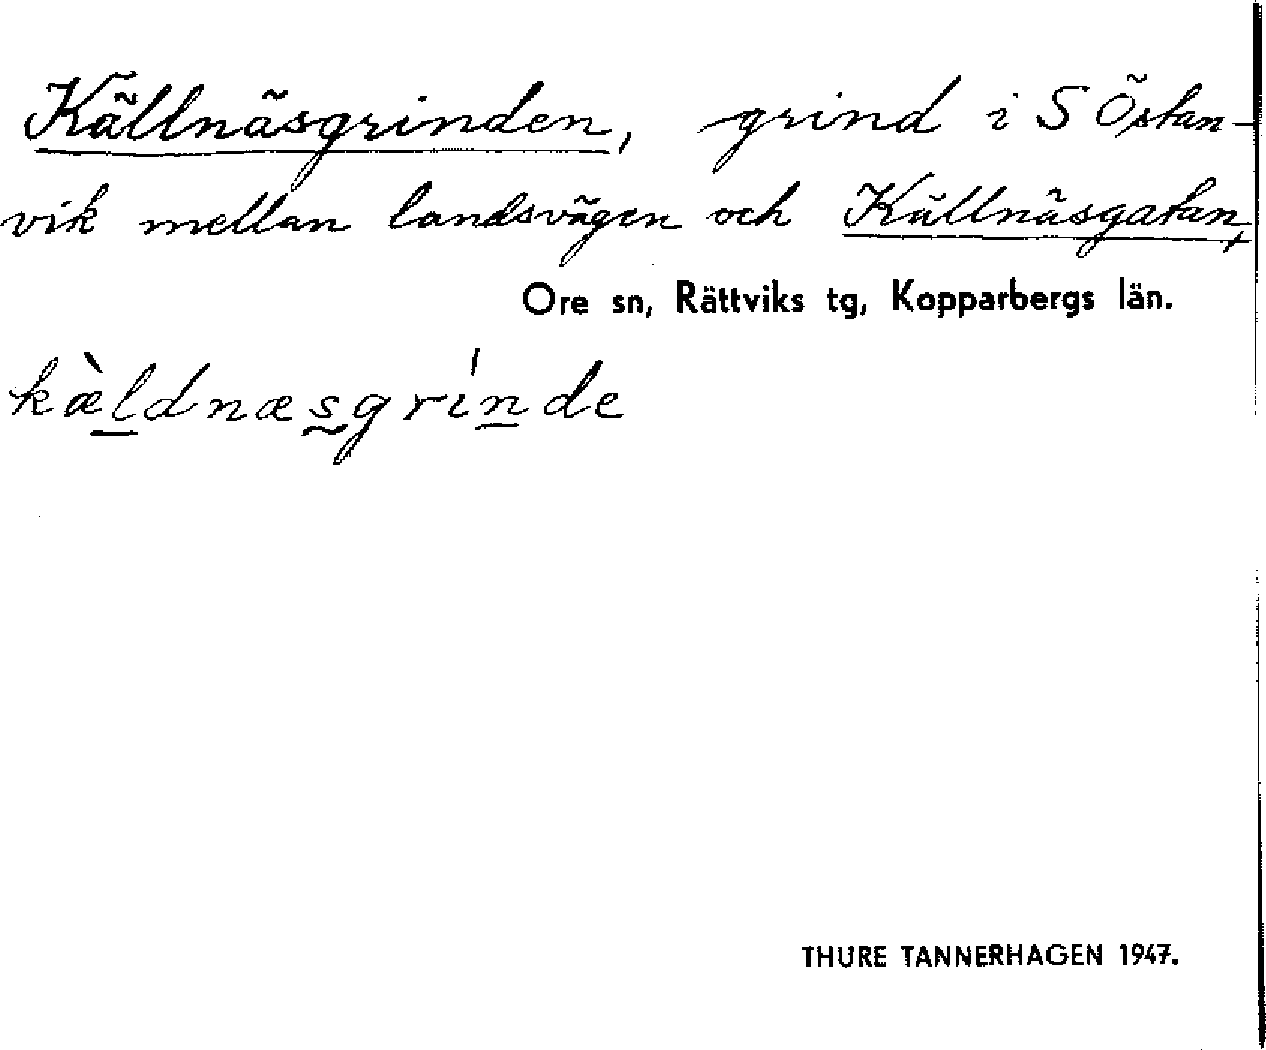 Källnäsgrinden, grind i S Östan-
vik mellan landsvägen och Källnäsgatan+
Ore sn, Rättviks tg, Kopparbergs län.
kæ̀l̲dnæs̰grín̲de
THURE TANNERHAGEN 1947.